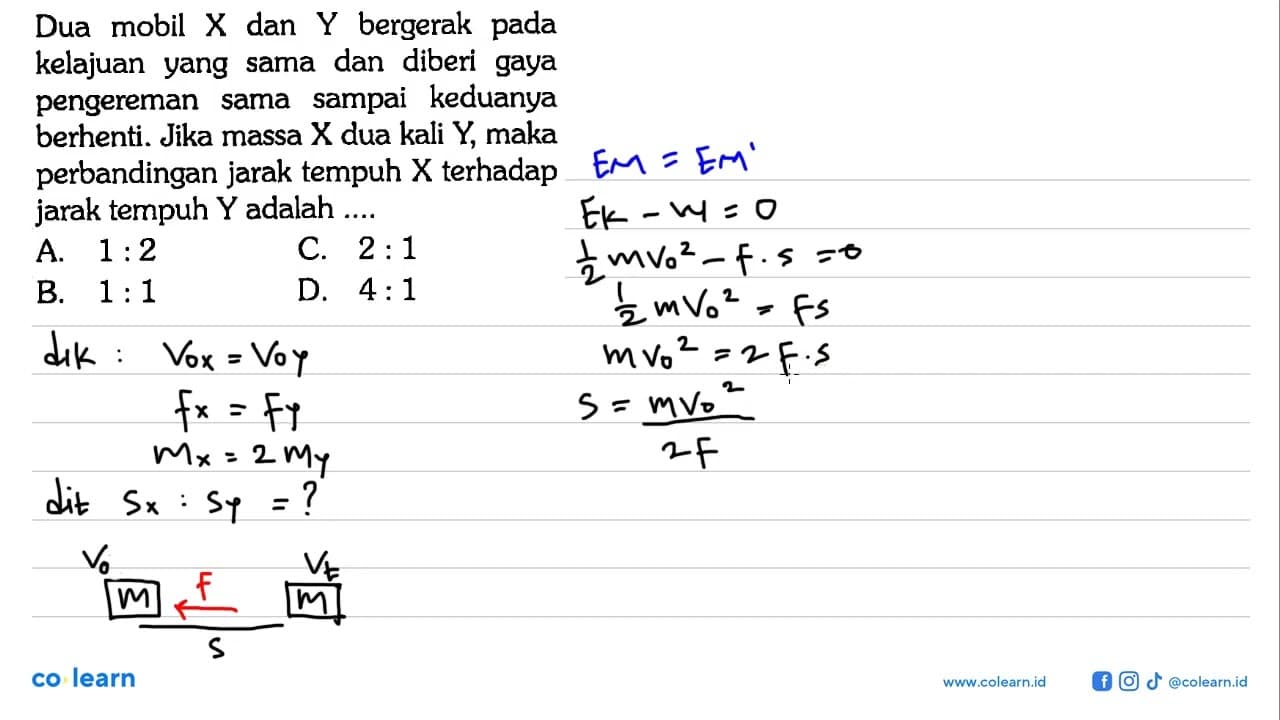 Dua mobil X dan Y bergerak pada
kelajuan yang sama dan diberi gaya
pengereman sama sampai keduanya
berhenti. Jika massa X dua kali Y, maka
perbandingan jarak tempuh X terhadap
jarak tempuh Y adalah ....
A. 1 : 2 C. 2 : 1
B. 1 : 1 D. 4 : 1
dik : Vox = Voy
Fx = Fy
mx = 2 my
dit Sx : Sy = ?
Vo F Vt
m m
S
EM = EM'
Ek - W = 0
1/2 mVo² - F . s = 0
1/2 mVo² = Fs
mVo² = 2 F.s
S = mVo²
2F
co learn
www.colearn.id @colearn.id